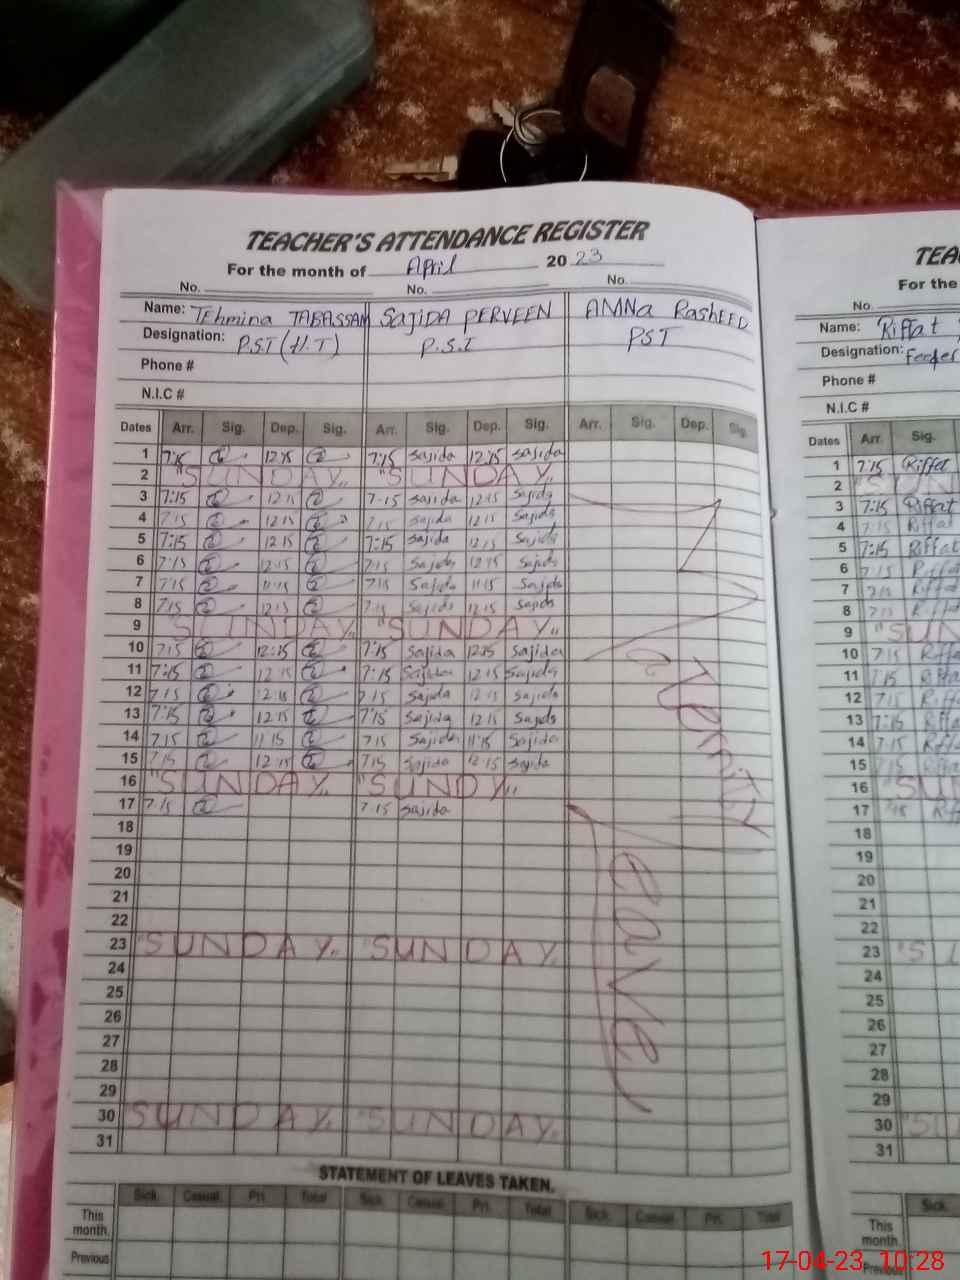 TEACHER'S ATTENDANCE REGISTER
For the month of April 2023
No. No. No.
Name: TEhmina TABASSAM SajiDA PERVEEN AMNa RasHEED
Designation: P.S.T (H.T) P.S.T PST
Phone #
N.I.C #
Dates Arr. Sig. Dep. Sig. Arr. Sig. Dep. Sig. Arr. Sig. Dep. Sig.
1 7:15 12:15 7:15 Sajida 12:15 Sajida
2 "SUNDAY" "SUNDAY"
3 7:15 12:15 7-15 Sajida 12:15 Sajida
4 7:15 12:15 7:15 Sajida 12:15 Sajida
5 7:15 12:15 7:15 Sajida 12:15 Sajida
6 7:15 12:15 7:15 Sajida 12:15 Sajida
7 7:15 11:15 7:15 Sajida 11:15 Sajida
8 7:15 12:15 7:15 Sajida 12:15 Sajida
9 "SUNDAY" "SUNDAY"
10 7:15 12:15 7:15 Sajida 12:15 Sajida
11 7:15 12:15 7:15 Sajida 12:15 Sajida
12 7:15 12:15 7:15 Sajida 12:15 Sajida
13 7:15 12:15 7:15 Sajida 12:15 Sajida
14 7:15 11:15 7:15 Sajida 11:15 Sajida
15 7:15 12:15 7:15 Sajida 12:15 Sajida
16 "SUNDAY" "SUNDY"
17 7:15 7:15 Sajida
18
19
20
21
22
23 "SUNDAY" "SUNDAY"
24
25
26
27
28
29
30 SUNDAY" "SUNDAY"
31
Leave
STATEMENT OF LEAVES TAKEN.
Sick. Casual. Pri. Total Sick. Casual. Pri. Total Sick. Casual. Pri. Total
This month.
Previous
TEA
For the
No.
Name: Riffat
Designation:
Phone #
N.I.C #
Dates Arr. Sig.
1 7:15 Riffat
2 "SUN
3 7:15 Riffat
4 7:15 Riffat
5 7:15 Riffat
6 7:15 Riffat
7 7:15 Riffat
8 7:15 Riffat
9 "SUN
10 7:15 Riffa
11 7:15 Riffa
12 7:15 Riffa
13 7:15 Riffa
14 7:15 Riffa
15 7:15 Riffa
16 "SUN
17 7:15 Riff
18
19
20
21
22
23 "S
24
25
26
27
28
29
30 "SU
31
Sick.
This month.
Previous
17-04-23 10:28